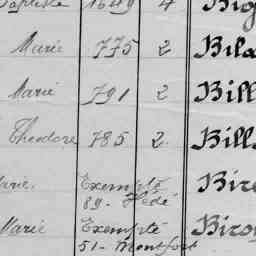 1649 4 Big
Marie 775 2 Bila
Marie 791 2 Bill
Theodore 785 2 Bill
Marie. Exempté Bir
89 - Hédé
Marie Exempté Biro
51 - Montfort